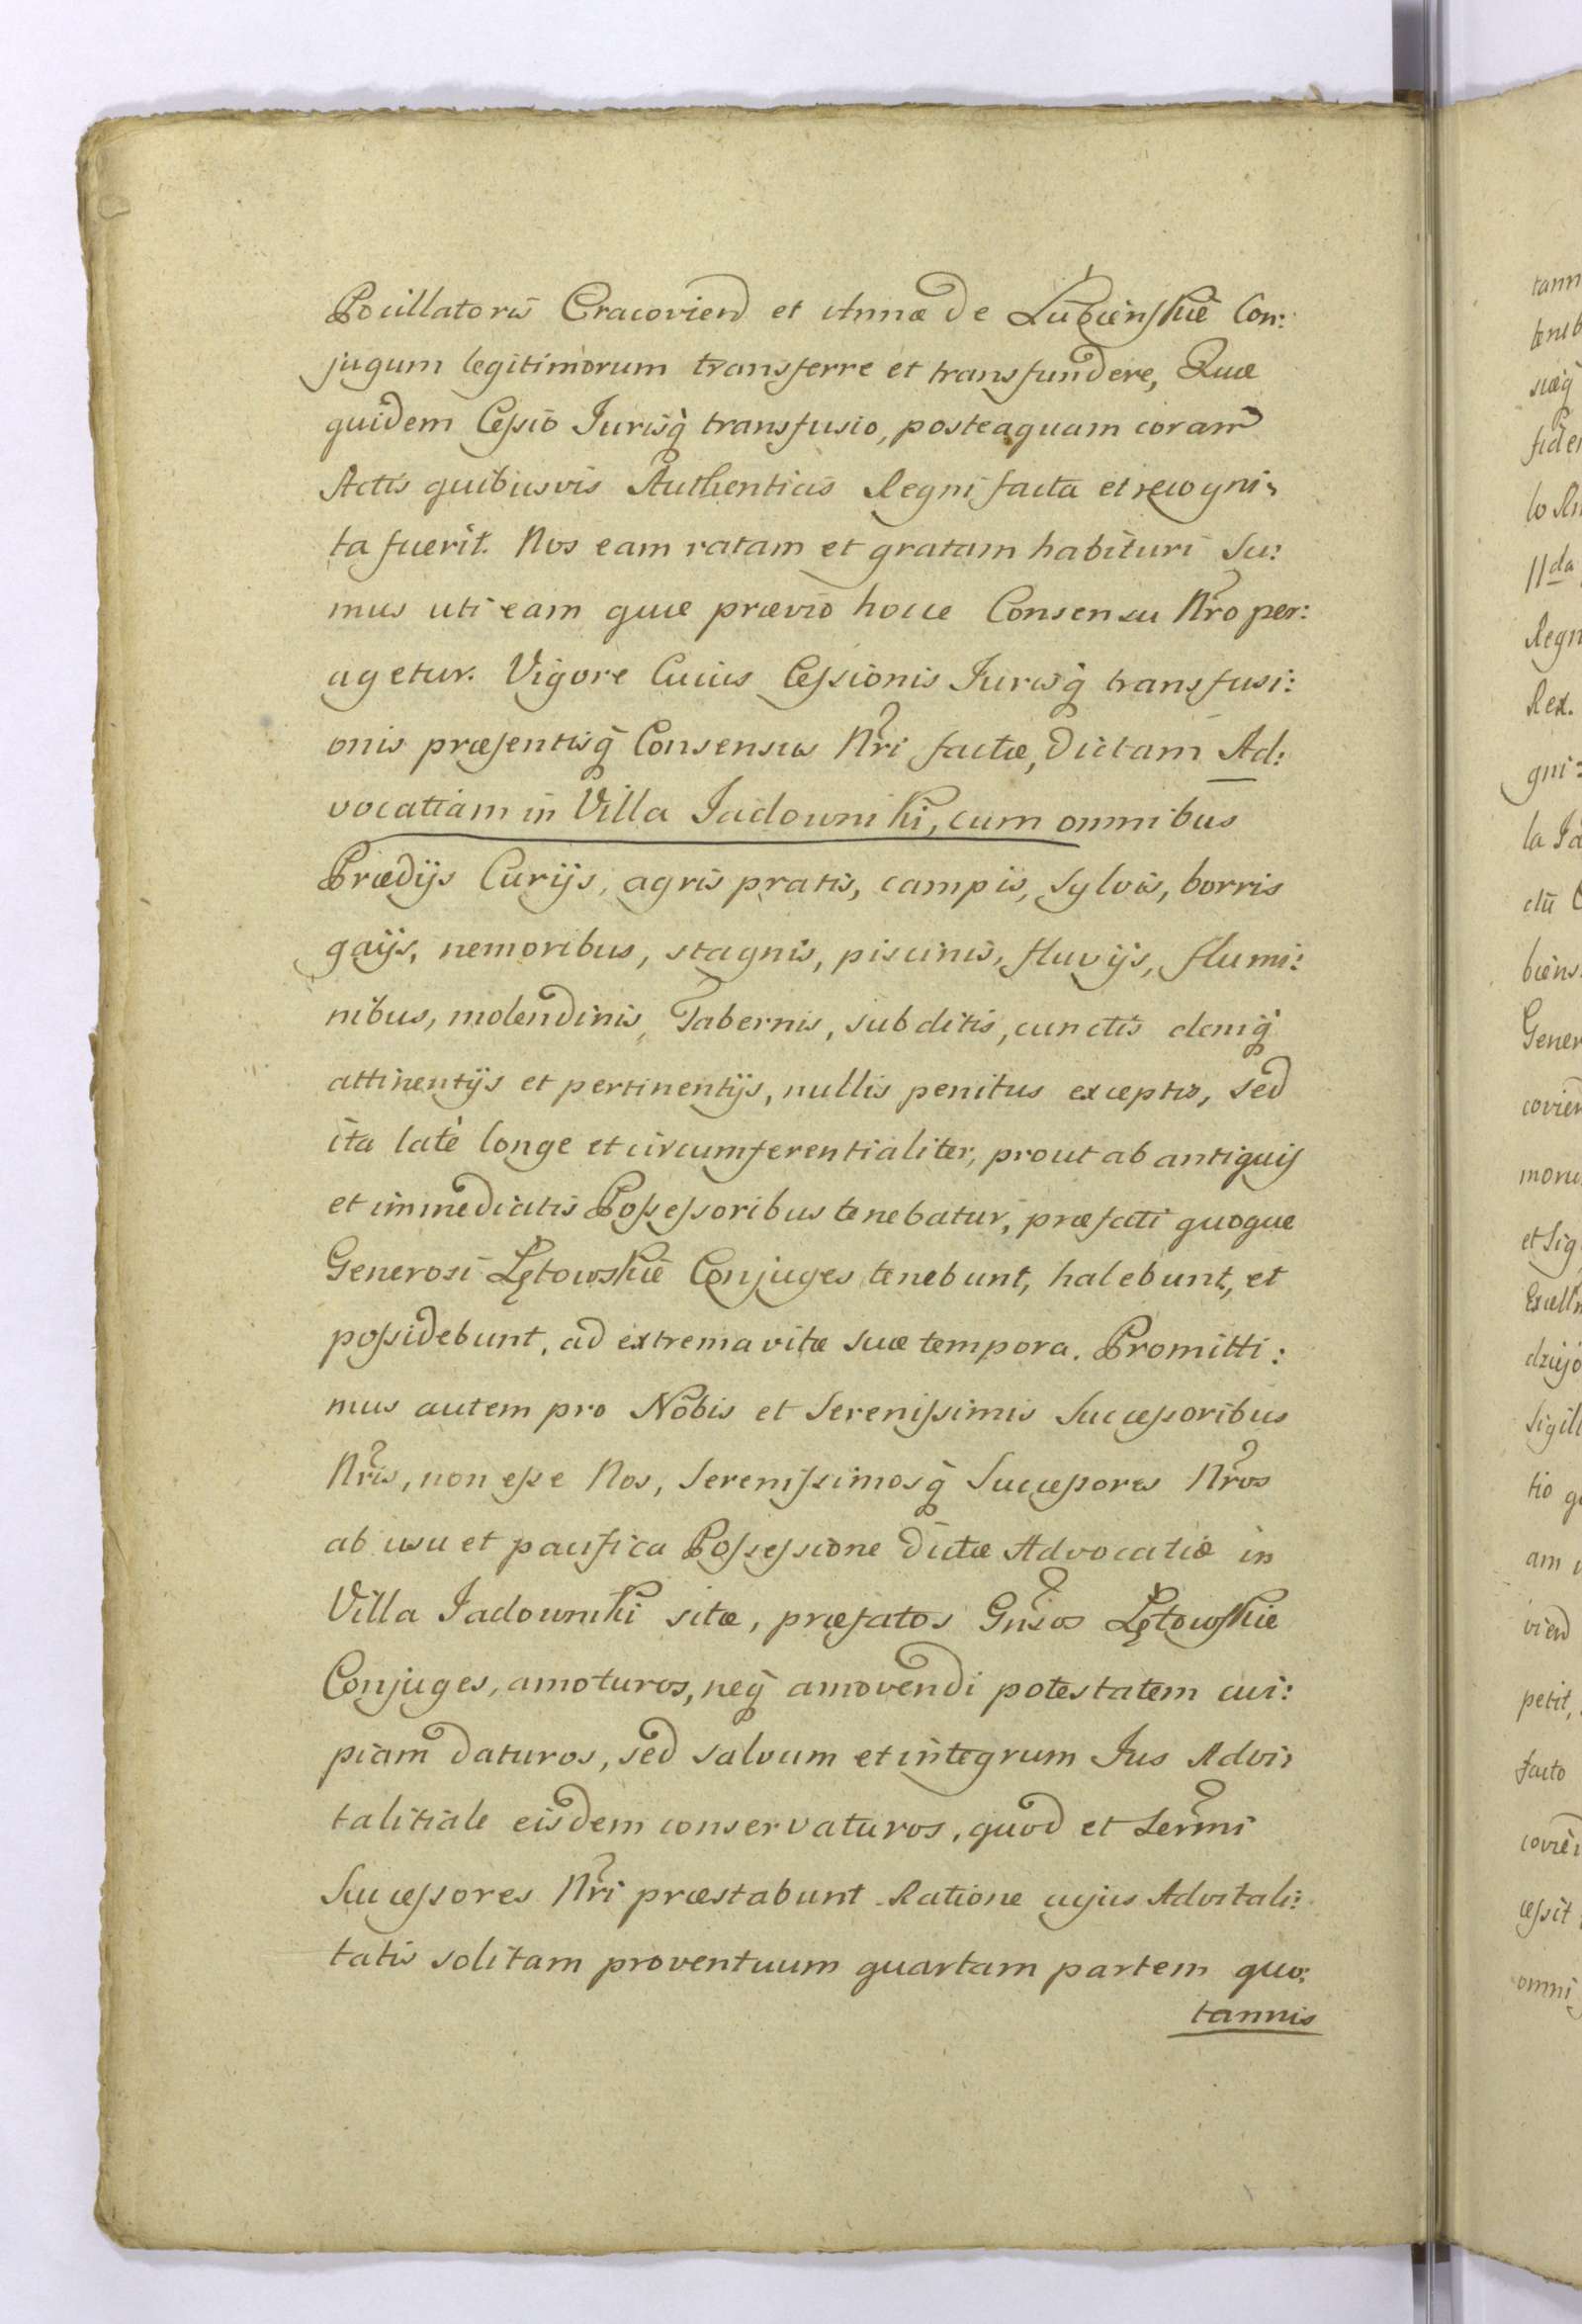 Pocillatoris Cracovien et Annæ de Łubieńskie Con:
jugum legitimorum transferre et transfundere, Quæ
quidem Cessio Jurisq̀ transfusio, posteaquam coram
Actis quibusvis Authenticis Regni facta et recogni:
ta fuerit. Nos eam ratam et gratam habituri Su:
mus uti eam quæ prævio hocce Consensu Nro per:
agetur. Vigore Cuius Cessionis Jurisq̀ transfusi:
onis præsentisq̀ Consensus Nri factæ, dictam Ad:
vocatiam in Villa Jadowniki, cum omnibus
Prædijs Curijs, agris pratis, campis, Sylvis, borris
gaijs, nemoribus, stagnis, piscinis, fluvijs, flumi:
nibus, molendinis, Tabernis, subditis, cunctis deniq̀
attinentijs et pertinentijs, nullis penitus exceptis, sed
ita latè longe et circumferentialiter, prout ab antiquis
et immediatis Possessoribus tenebatur, præfati quoque
Generosi Łętowskie Conjuges tenebunt, habebunt, et
possidebunt, ad extrema vitæ suæ tempora. Promitti:
mus autem pro Nobis et Serenissimis Successoribus
Nris, non esse Nos, Serenissimosq̀ Successores Nros
ab usu et pacifica Possessione dictæ Advocatiæ in
Villa Jadowniki sitæ, præfatos Gnsos Łętowskie
Conjuges, amoturos, neq̀ amovendi potestatem cui:
piam daturos, sed salvum et integrum Jus Advi:
talitiale eisdem conservaturos, quod et Sermi
Successores Nri præstabunt. Ratione cujus Advitali:
tatis solitam proventuum quartam partem quo:
tannis